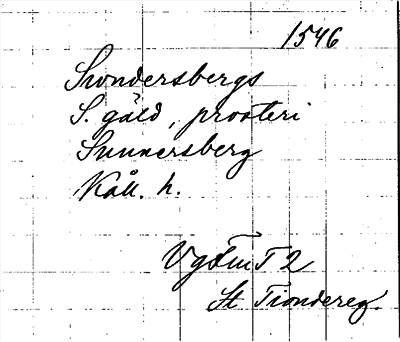 1546
Swndersbergs
S. gäld, prosteri
Sunnersberg
Kåll. h.
Vg Tiondereg.